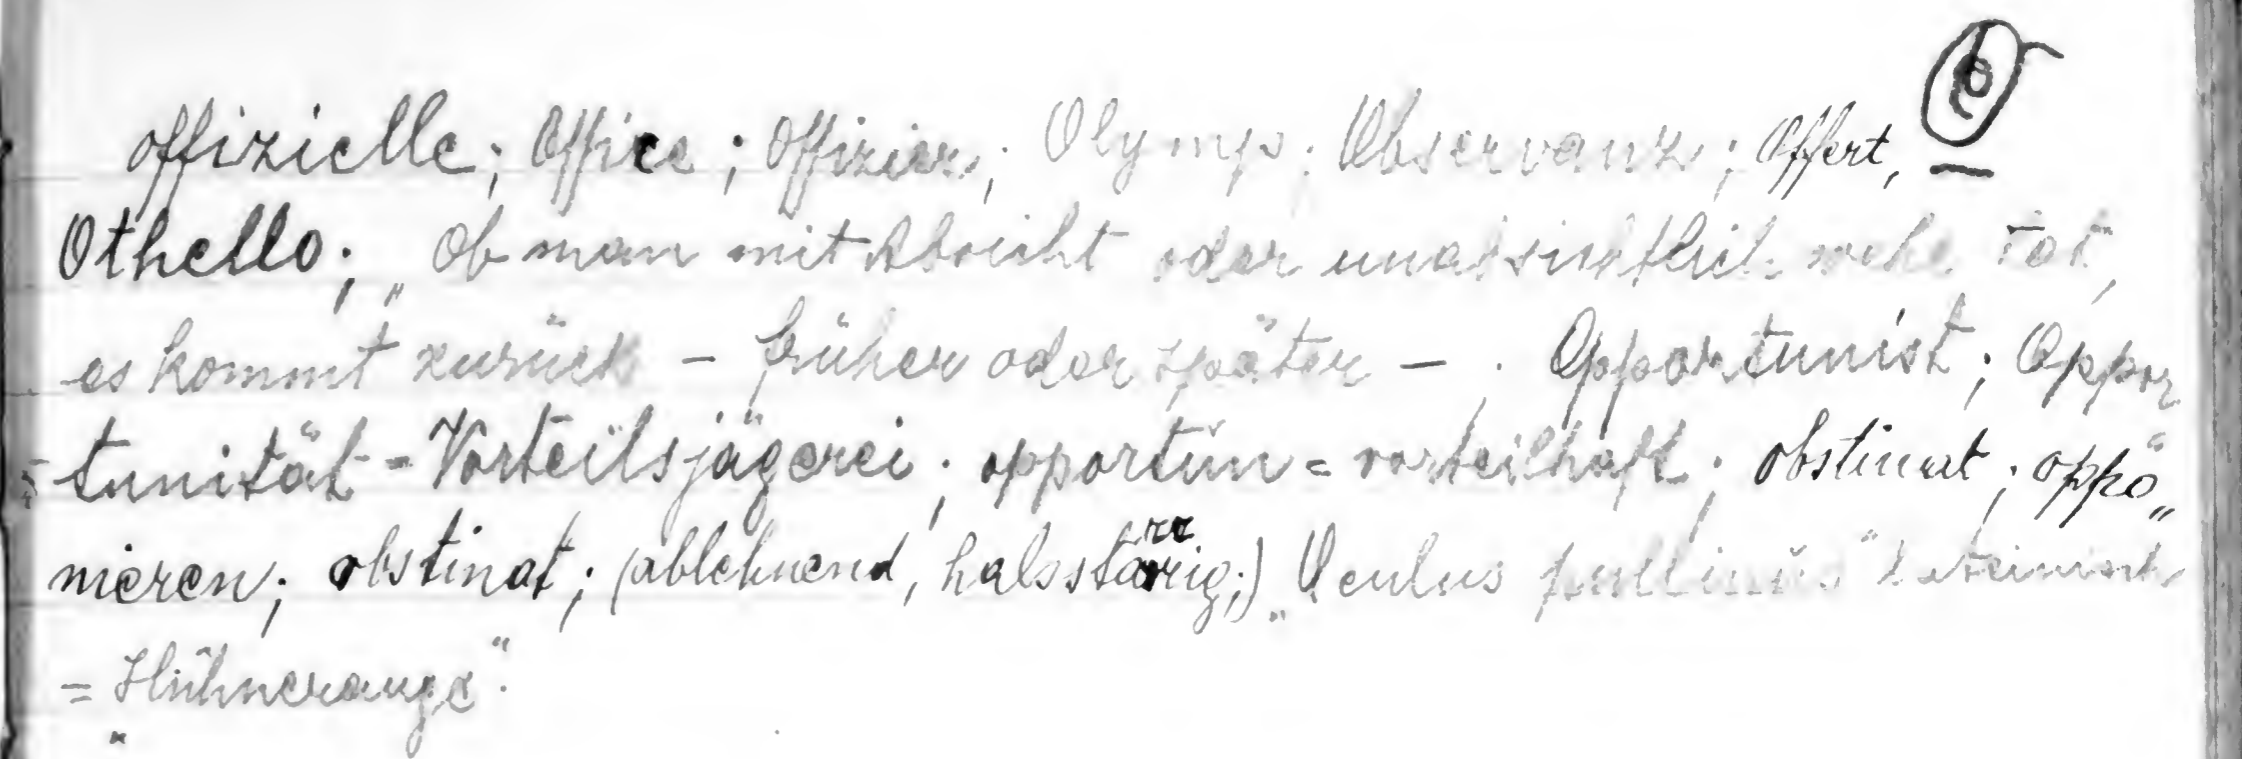 offizielle; Office; Offizier; Olymp; Observanz; Offert,
Othello; „Ob man mit Absicht oder unabsichtlich wehe tat,
es kommt zurück – früher oder später –. Opportunist; Oppor
tunität = Vorteilsjägerei; opportun = vorteilhaft; obstinat; oppo„
nieren; obstinat; (ablehnend, halsstarrig;) „Oculus pullinus" Lateinisch
= „Hühnerauge".